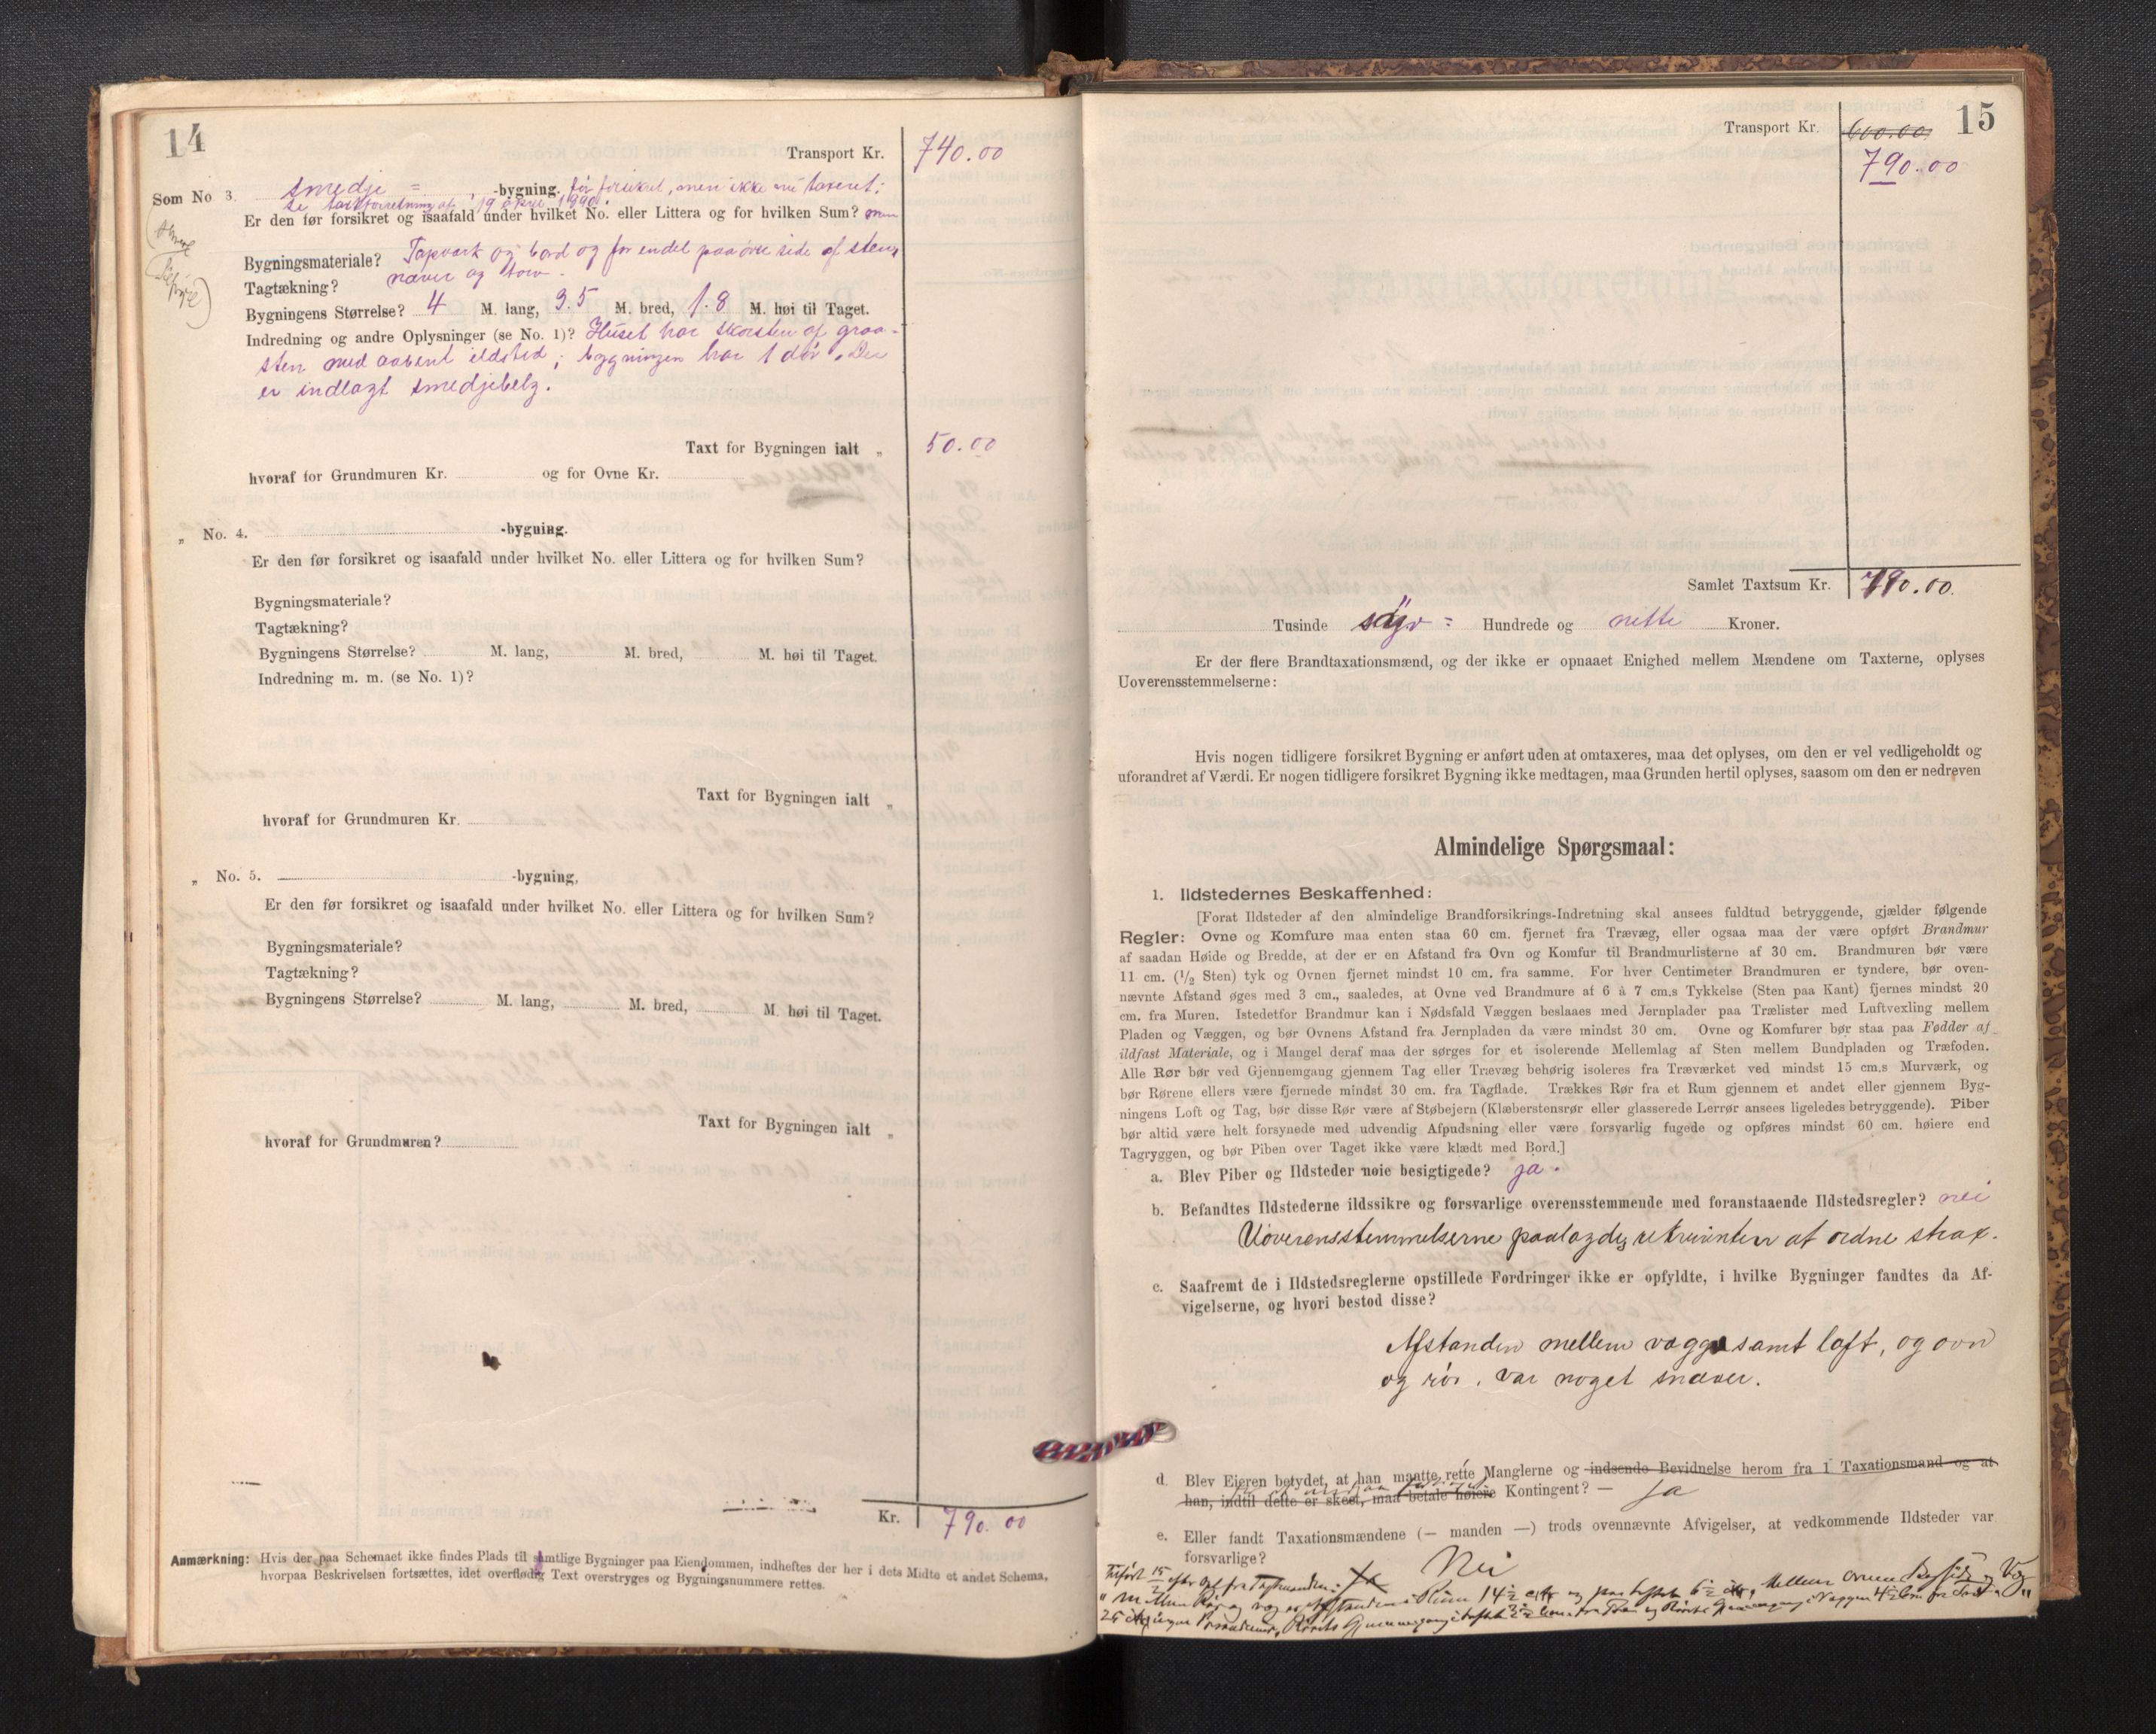 14
Transport Kr. 740.00
Som No 3. smedje = -bygning. før forsikret, men ikke nu taxeret;
19 1890.
Er den før forsikret og isaafald under hvilket No. eller Littera og for hvilken Sum?
Bygningsmateriale? og bord og for endel paa øvre side af sten,
Tagtækning? næver og torv.
Bygningens Størrelse? 4 M. lang, 3.5 M. bred, 1.8 M. høi til Taget.
Indredning og andre Oplysninger (se No. 1)? Huset har skorsten af graa-
sten med aabent ildsted; bygningen har 1 dør. Der
er indlagt smedjebelg.
Taxt for Bygningen ialt „ 50.00
hvoraf for Grundmuren Kr. og for Ovne Kr.
„ No. 4. -bygning.
Er den før forsikret og isaafald under hvilket No. eller Littera og for hvilken Sum?
Bygningsmateriale?
Tagtækning?
Bygningens Størrelse? M. lang, M. bred, M. høi til Taget.
Indredning m. m. (se No. 1)?
Taxt for Bygningen ialt „
hvoraf for Grundmuren Kr.
„ No. 5. -bygning,
Er den før forsikret og isaafald under hvilket No. eller Littera og for hvilken Sum?
Bygningsmateriale?
Tagtækning?
Bygningens Størrelse? M. lang, M. bred, M. høi til Taget.
Taxt for Bygningen ialt „
hvoraf for Grundmuren?
Kr. 790.00
Anmærkning: Hvis der paa Schemaet ikke findes Plads til samtlige Bygninger paa Eiendommen, indheftes der her i dets Midte et andet Schema,
hvorpaa Beskrivelsen fortsættes, idet overflødig Text overstryges og Bygningsnummere rettes.
15
Transport Kr. 600.00
790.00
Samlet Taxtsum Kr. 790.00.
Tusinde syv = Hundrede og nitti Kroner.
Er der flere Brandtaxationsmænd, og der ikke er opnaaet Enighed mellem Mændene om Taxterne, oplyses
Uoverensstemmelserne:
Hvis nogen tidligere forsikret Bygning er anført uden at omtaxeres, maa det oplyses, om den er vel vedligeholdt og
uforandret af Værdi. Er nogen tidligere forsikret Bygning ikke medtagen, maa Grunden hertil oplyses, saasom om den er nedreven
Almindelige Spørgsmaal:
1. Ildstedernes Beskaffenhed:
[Forat Ildsteder af den almindelige Brandforsikrings-Indretning skal ansees fuldtud betryggende, gjælder følgende
Regler: Ovne og Komfure maa enten staa 60 cm. fjernet fra Trævæg, eller ogsaa maa der være opført Brandmur
af saadan Høide og Bredde, at der er en Afstand fra Ovn og Komfur til Brandmurlisterne af 30 cm. Brandmuren bør være
11 cm. (1/2 Sten) tyk og Ovnen fjernet mindst 10 cm. fra samme. For hver Centimeter Brandmuren er tyndere, bør oven-
nævnte Afstand øges med 3 cm., saaledes, at Ovne ved Brandmure af 6 à 7 cm.s Tykkelse (Sten paa Kant) fjernes mindst 20
cm. fra Muren. Istedetfor Brandmur kan i Nødsfald Væggen beslaaes med Jernplader paa Trælister med Luftvexling mellem
Pladen og Væggen, og bør Ovnens Afstand fra Jernpladen da være mindst 30 cm. Ovne og Komfurer bør staa paa Fødder af
ildfast Materiale, og i Mangel deraf maa der sørges for et isolerende Mellemlag af Sten mellem Bundpladen og Træfoden.
Alle Rør bør ved Gjennemgang gjennem Tag eller Trævæg behørig isoleres fra Træværket ved mindst 15 cm.s Murværk, og
bør Rørene ellers være fjernede mindst 30 cm. fra Tagflade. Trækkes Rør fra et Rum gjennem et andet eller gjennem Byg-
ningens Loft og Tag, bør disse Rør være af Støbejern (Klæberstensrør eller glasserede Lerrør ansees ligeledes betryggende). Piber
bør altid være helt forsynede med udvendig Afpudsning eller være forsvarlig fugede og opføres mindst 60 cm. høiere end
Tagryggen, og bør Piben over Taget ikke være klædt med Bord.]
a. Blev Piber og Ildsteder nøie besigtigede? ja.
b. Befandtes Ildstederne ildssikre og forsvarlige overensstemmende med foranstaaende Ildstedsregler? nei
Uoverensstemmelserne paalagdes rekvirenten at ordne strax.
c. Saafremt de i Ildstedsreglerne opstillede Fordringer ikke er opfyldte, i hvilke Bygninger fandtes da Af-
vigelserne, og hvori bestod disse?
Afstanden mellem vægge samt loft, og ovn
og rør, var noget snæver.
d. Blev Eieren betydet, at han maatte rette Manglerne og indsende Bevidnelse herom fra 1 Taxationsmand og at
han, indtil dette er skeet, maa betale høiere Kontingent? — Ja
e. Eller fandt Taxationsmændene (— manden —) trods ovennævnte Afvigelser, at vedkommende Ildsteder var
forsvarlige? Ja Nei